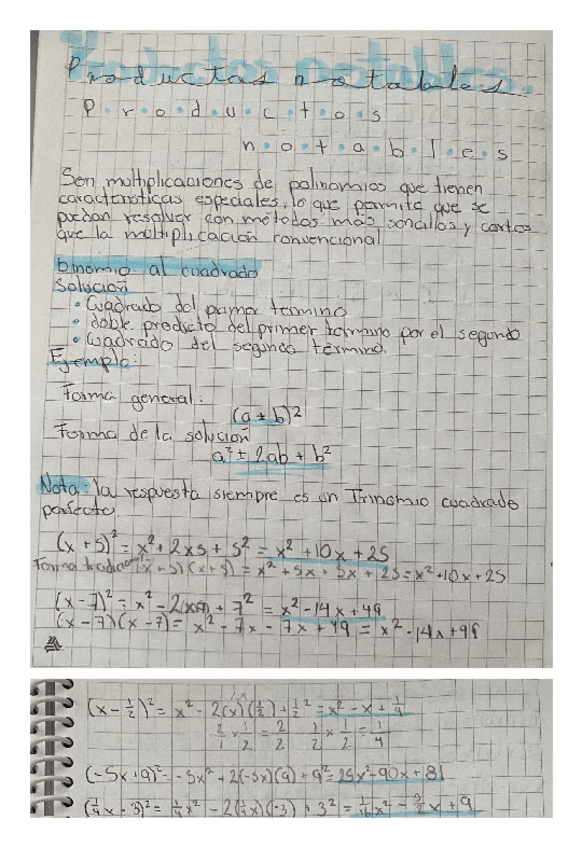 Productos notables
P·r·o·d·u·c·t·o·s
n·o·t·a·b·l·e·s
Son multiplicaciones de polinomios que tienen
características especiales, lo que permite que se
puedan resolver con métodos más sencillos y cortos
que la multiplicación convencional
binomio al cuadrado
Solución
• Cuadrado del primer termino
• doble producto del primer termino por el segundo
• Cuadrado del segundo termino.
Ejemplo:
Forma general:
(a ± b)²
Forma de la solución
a² ± 2ab + b²
Nota: la respuesta siempre es un Trinomio cuadrado
perfecto
(x + 5)² = x² + 2x5 + 5² = x² + 10x + 25
Forma tradicional (x + 5)(x + 5) = x² + 5x + 5x + 25 = x² + 10x + 25
(x - 7)² = x² - 2(x)(7) + 7² = x² - 14x + 49
(x - 7)(x - 7) = x² - 7x - 7x + 49 = x² - 14x + 49
(x - 1/2)² = x² - 2(x)(1/2) + 1/2² = x² - x + 1/4
2/1 x 1/2 = 2/2 1/2 x 1/2 = 1/4
(-5x + 9)² = -5x² + 2(-5x)(9) + 9² = 25x² - 90x + 81
(1/4x - 3)² = 1/4x² - 2(1/4x)(-3) + 3² = 1/16x² - 3/2x + 9